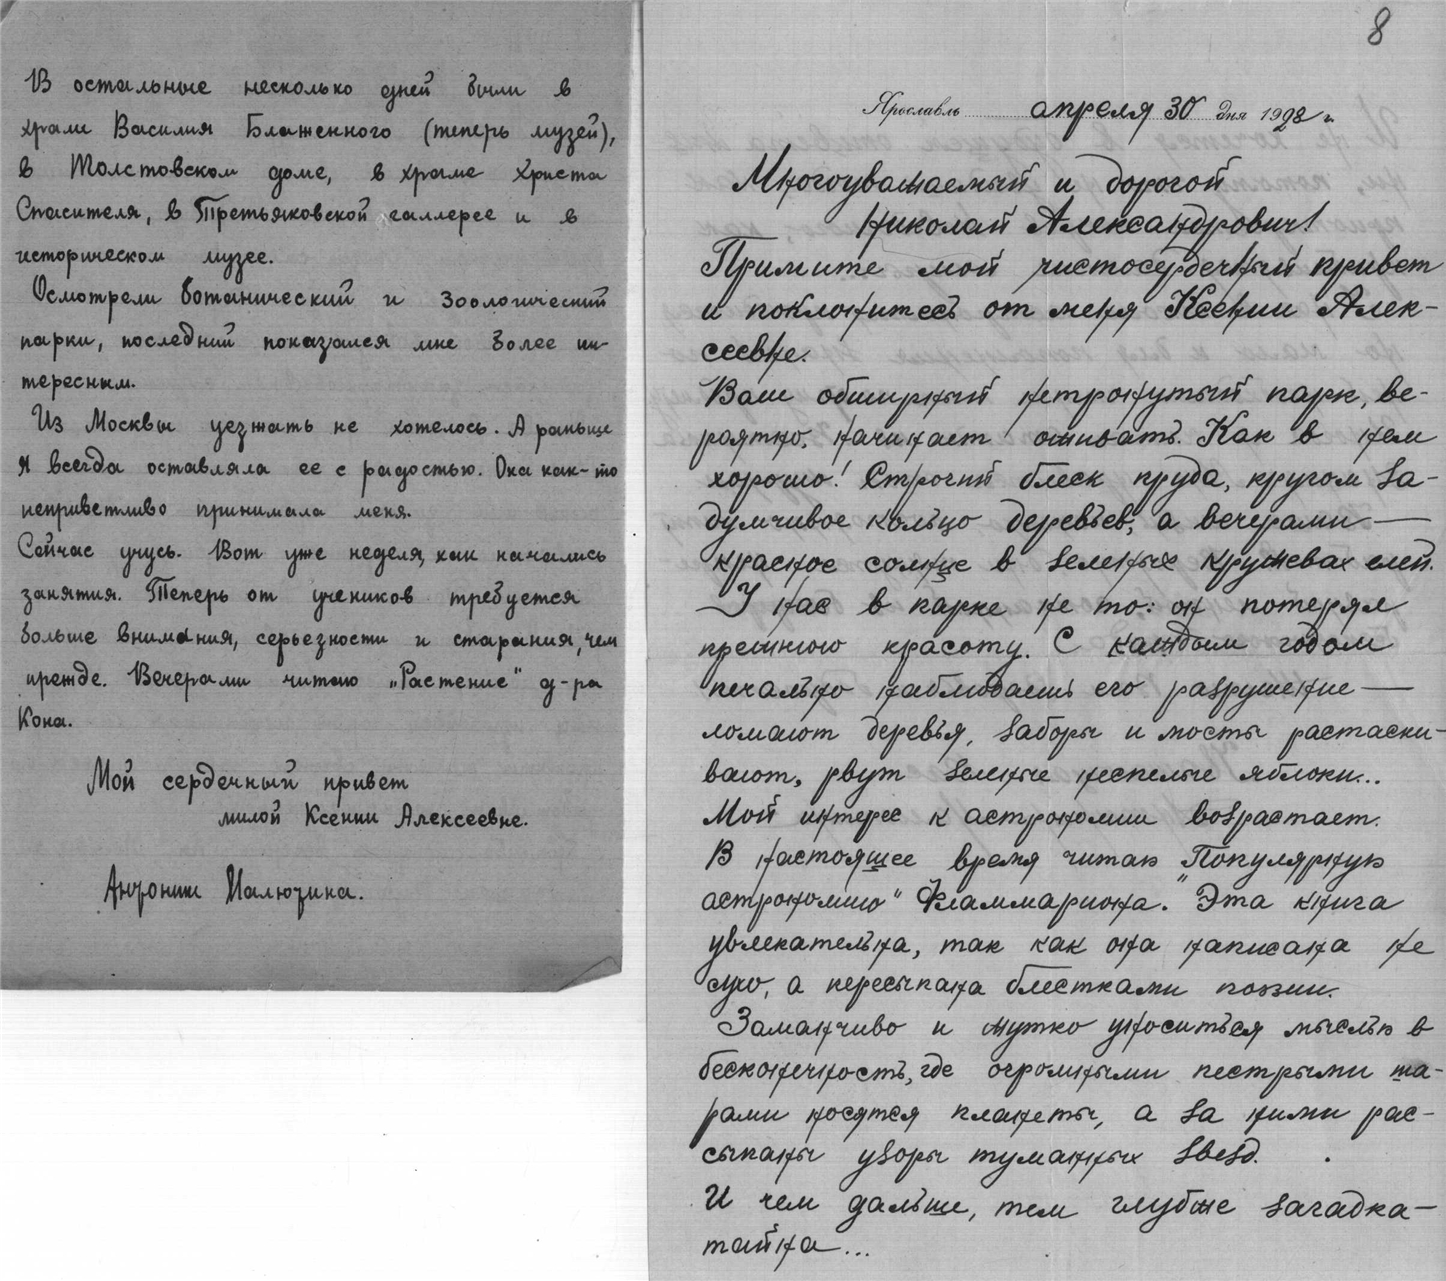 В остальные несколько дней были в
храме Василия Блаженного (теперь музей),
в Толстовском доме, в храме Христа
Спасителя, в Третьяковской галлерее и в
историческом музее.
Осмотрели ботанический и зоологический
парки, последний показался мне более ин-
тересным.
Из Москвы уезжать не хотелось. А раньше
я всегда оставляла ее с радостью. Она как-то
неприветливо принимала меня.
Сейчас учусь. Вот уже неделя, как начались
занятия. Теперь от учеников требуется
больше внимания, серьезности и старания, чем
прежде. Вечерами читаю „Растение" д-ра
Кона.
Мой сердечный привет
милой Ксении Алексеевне.
8
Ярославль апреля 30 дня 1928 г.
Многоуважаемый и дорогой
Николай Александрович!
Примите мой чистосердечный привет
и поклонитесь от меня Ксении Алек-
сеевне.
Ваш обширный нетронутый парк, ве-
роятно, начинает оживать. Как в нем
хорошо! Строгий блеск пруда, кругом за-
думчивое кольцо деревьев, а вечерами —
красное солнце в зеленых кружевах елей.
У нас в парке не то: он потерял
прежнюю красоту. С каждым годом
печально наблюдаешь его разрушение —
ломают деревья, заборы и мосты растаски-
вают, рвут зеленые неспелые яблоки...
Мой интерес к астрономии возрастает.
В настоящее время читаю „Популярную
астрономию" Фламмариона. Эта книга
увлекательна, так как она написана не
сухо, а пересыпана блестками поэзии.
Заманчиво и жутко уноситься мыслью в
бесконечность, где огромными пестрыми ша-
рами носятся планеты, а за ними рас-
сыпаны узоры туманных звезд.
И чем дальше, тем глубже загадка —
тайна...